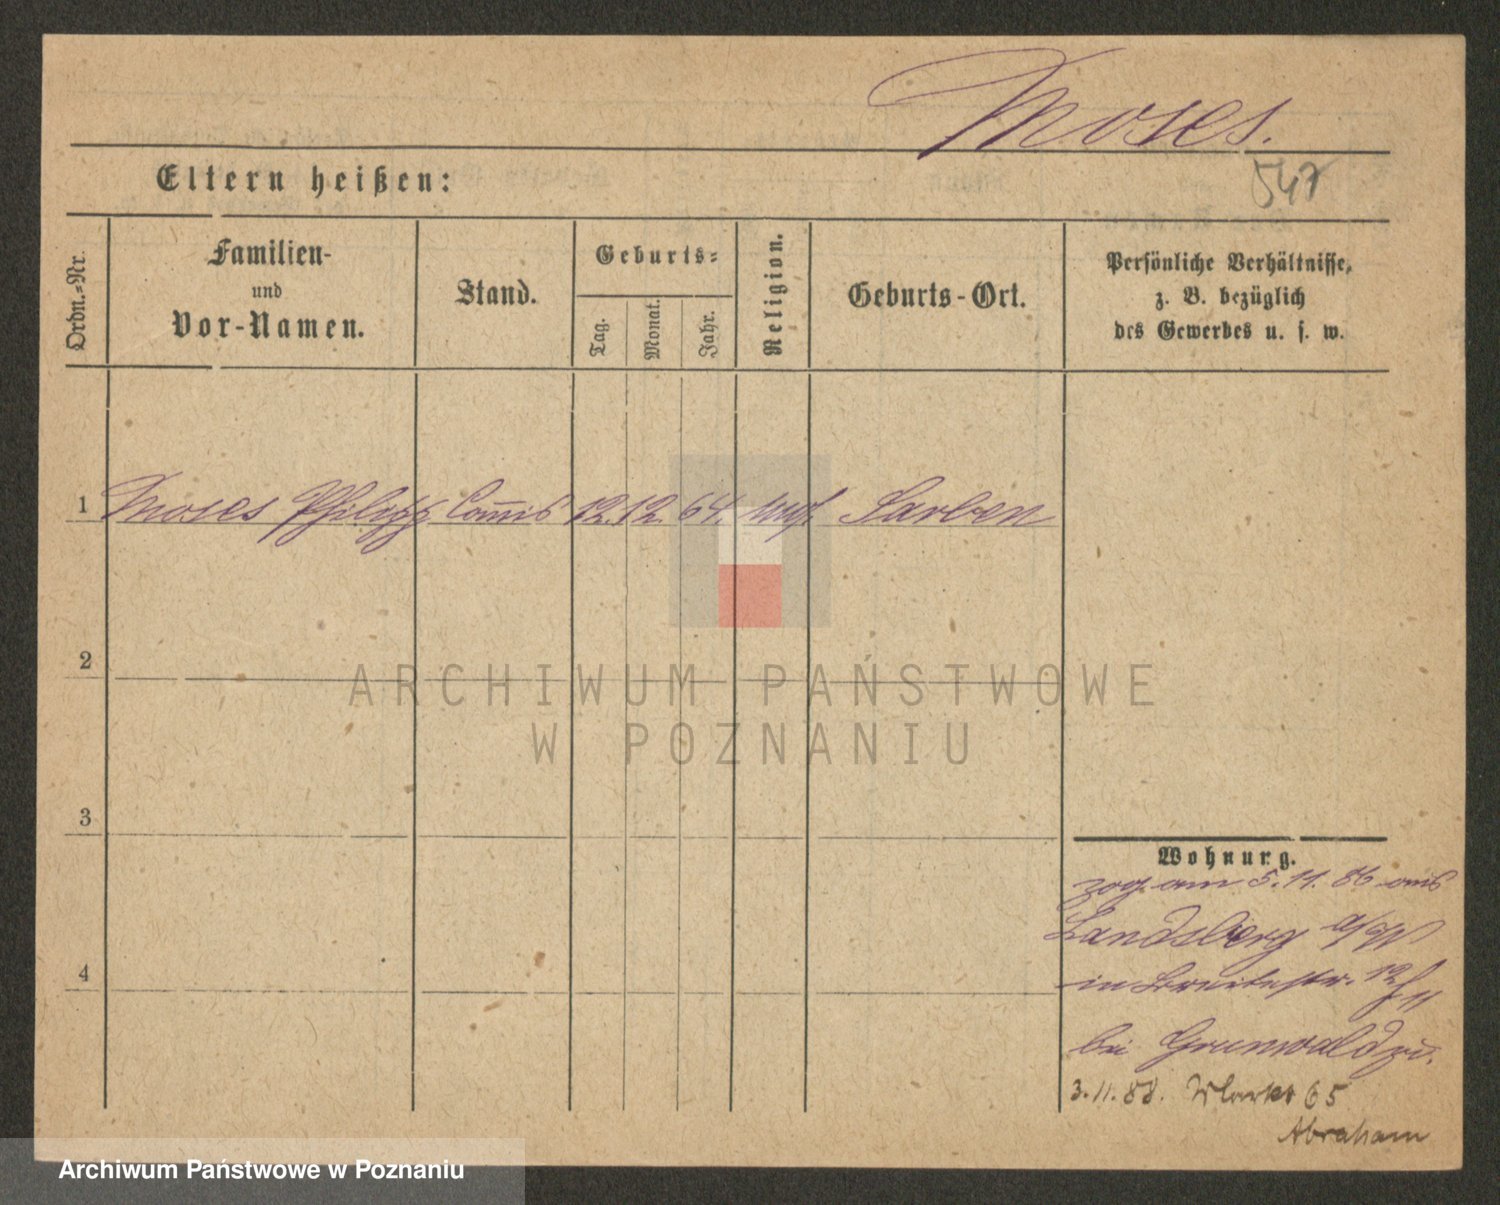 Moses.
547
Eltern heißen:
Ordn.-Nr.
Familien-
und
Vor-Namen.
Stand.
Geburts-
Tag.
Monat.
Jahr.
Religion.
Geburts-Ort.
Persönliche Verhältnisse,
z. B. bezüglich
des Gewerbes u. s. w.
1 Moses Philipp Com̅is 12. 12. 64. mos. Sarben
2
3
4
ARCHIWUM PAŃSTWOWE
W POZNANIU
Wohnung.
zog. am 5. 11. 86 aus
Landsberg a/W
in Breitestr. 12
bei Grunwald zu.
3. 11. 88. Markt 65
Abraham
Archiwum Państwowe w Poznaniu